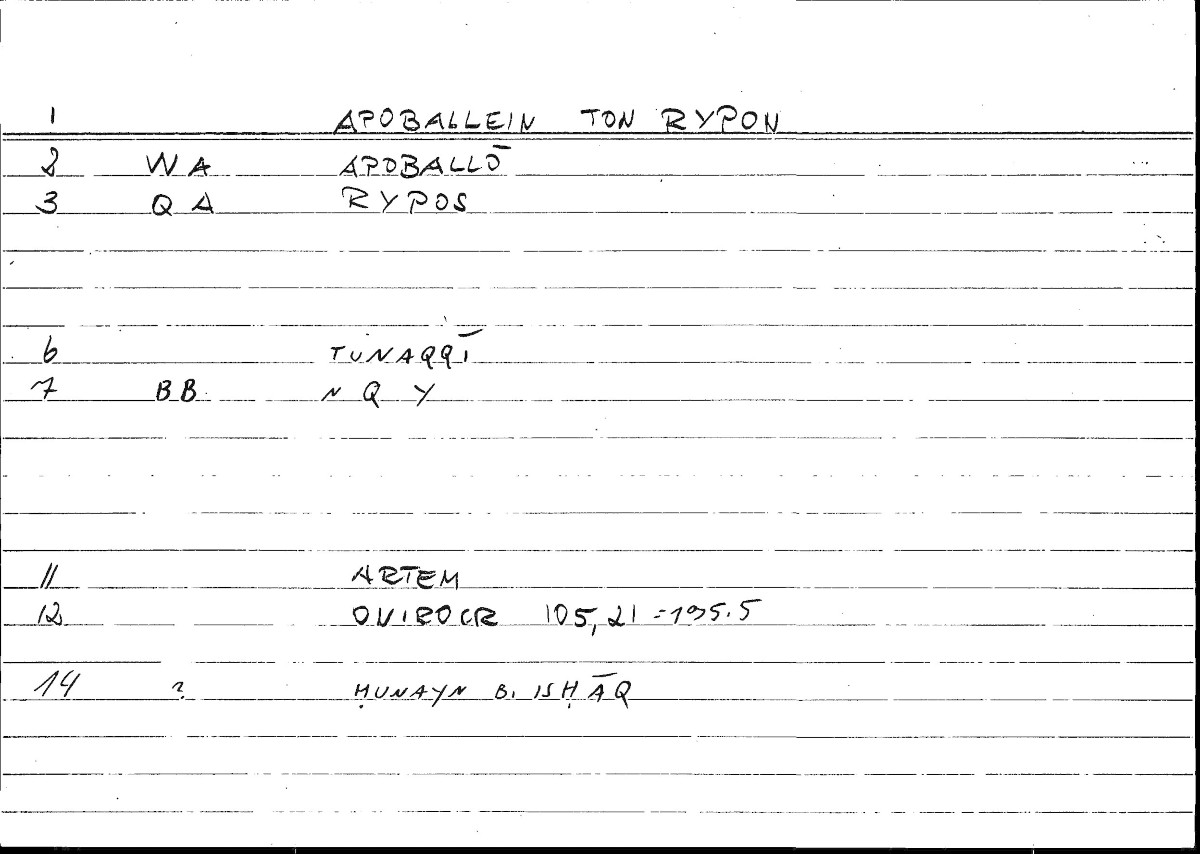 1 APOBALLEIN TON RYPON
2 WA APOBALLŌ
3 QA RYPOS
6 TUNAQQĪ
7 BB N Q Y
11 ARTEM
12 ONIROCR 105,21 = 195.5
14 ? ḤUNAYN B. ISḤĀQ